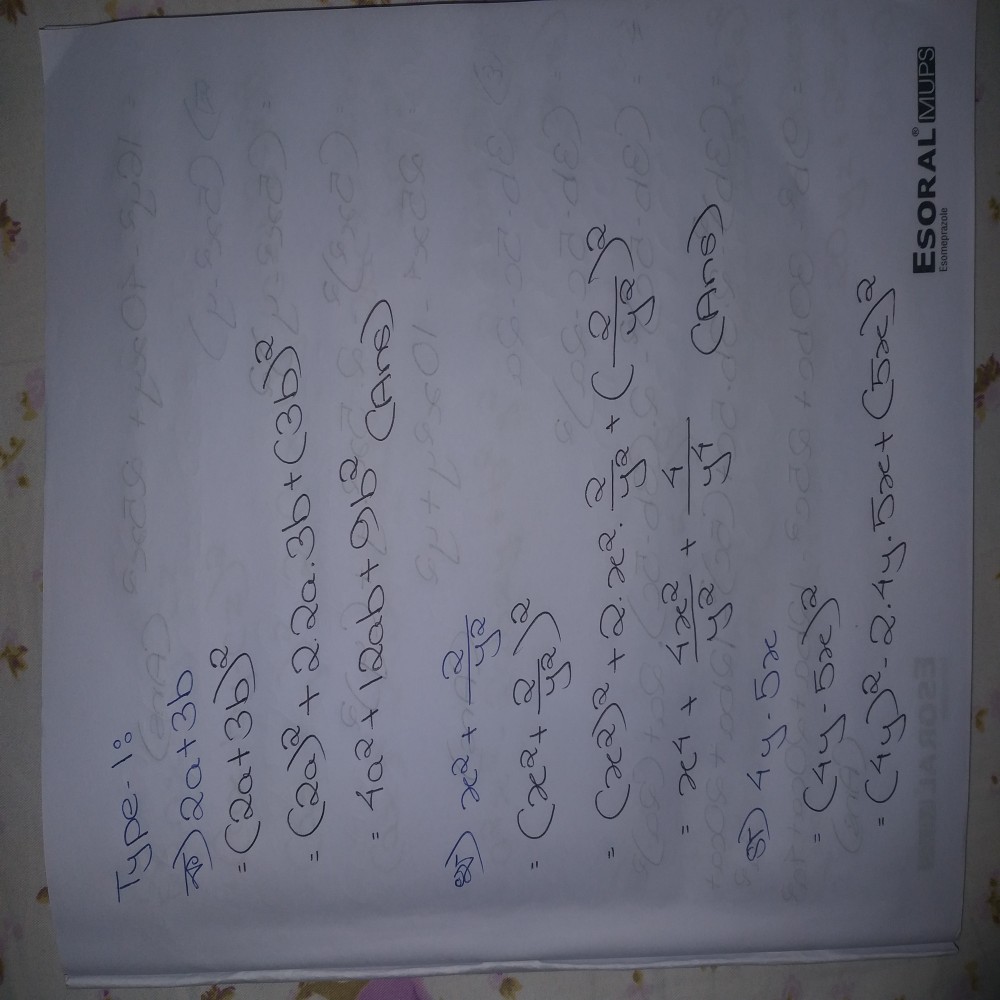 Type-1:
ক) 2a+3b
= (2a+3b)²
= (2a)² + 2.2a.3b+(3b)²
= 4a² + 12ab + 9b² (Ans)
খ) x² + 2/y²
= (x² + 2/y²)²
= (x²)² + 2.x².2/y² + (2/y²)²
= x⁴ + 4x²/y² + 4/y⁴ (Ans)
গ) 4y-5x
= (4y-5x)²
= (4y)² - 2.4y.5x + (5x)²
ESORAL® MUPS
Esomeprazole